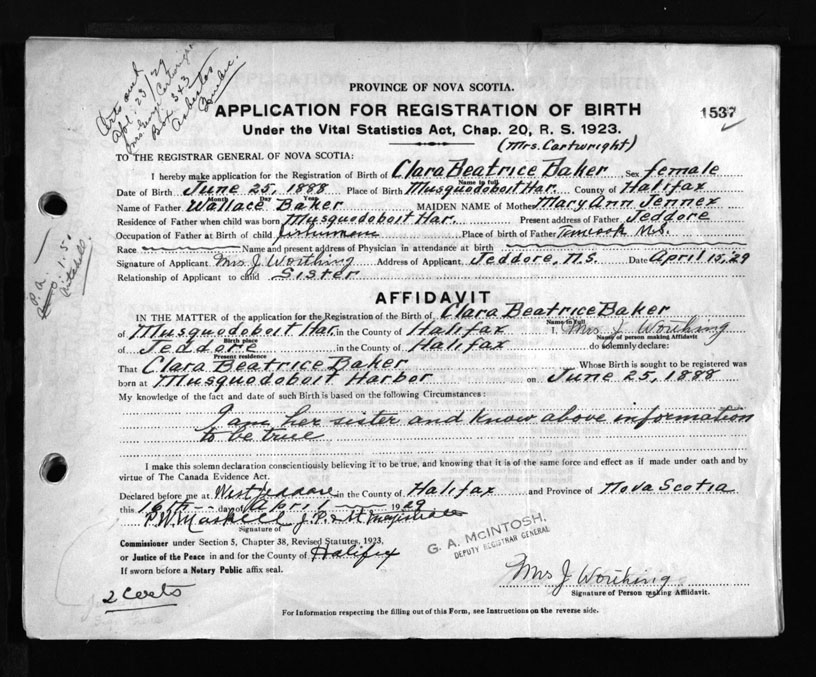 Certs and
Apl. 23/29
Mrs George Cartwright
Box 343
Asbestos
Quebec.
PROVINCE OF NOVA SCOTIA.
APPLICATION FOR REGISTRATION OF BIRTH
1537
Under the Vital Statistics Act, Chap. 20, R. S. 1923.
(Mrs. Cartwright)
TO THE REGISTRAR GENERAL OF NOVA SCOTIA:
I hereby make application for the Registration of Birth of Clara Beatrice Baker Sex female
Name in full
Date of Birth June 25, 1888 Place of Birth Musquodoboit Har. County of Halifax
Month Day Year
Name of Father Wallace Baker MAIDEN NAME of Mother Mary Ann Jennex
Residence of Father when child was born Musquodoboit Har. Present address of Father Jeddore
Occupation of Father at Birth of child fisherman Place of birth of Father Tancook N.S.
Race Name and present address of Physician in attendance at birth
Signature of Applicant Mrs J Worthing Address of Applicant Jeddore, N.S. Date April 15, 29
Relationship of Applicant to child Sister
P.a. 1.50
AFFIDAVIT
IN THE MATTER of the application for the Registration of the Birth of Clara Beatrice Baker
Name in Full
of Musquodoboit Har. in the County of Halifax I, Mrs J Worthing
Birth place Name of person making Affidavit
of Jeddore in the County of Halifax do solemnly declare:
Present residence
That Clara Beatrice Baker Whose Birth is sought to be registered was
born at Musquodoboit Harbor on June 25, 1888
My knowledge of the fact and date of such Birth is based on the following Circumstances:
I am her sister and know above information
to be true
I make this solemn declaration conscientiously believing it to be true, and knowing that it is of the same force and effect as if made under oath and by
virtue of The Canada Evidence Act.
Declared before me at West Jeddore in the County of Halifax and Province of Nova Scotia
this 16th day of April 1929
P. W. Maskell J. P. & St. Magistrate
Signature of
Commissioner under Section 5, Chapter 38, Revised Statutes, 1923,
or Justice of the Peace in and for the County of Halifax
If sworn before a Notary Public affix seal.
G. A. McINTOSH,
DEPUTY REGISTRAR GENERAL
Mrs J Worthing
Signature of Person making Affidavit.
2 Certs
For Information respecting the filling out of this Form, see Instructions on the reverse side.